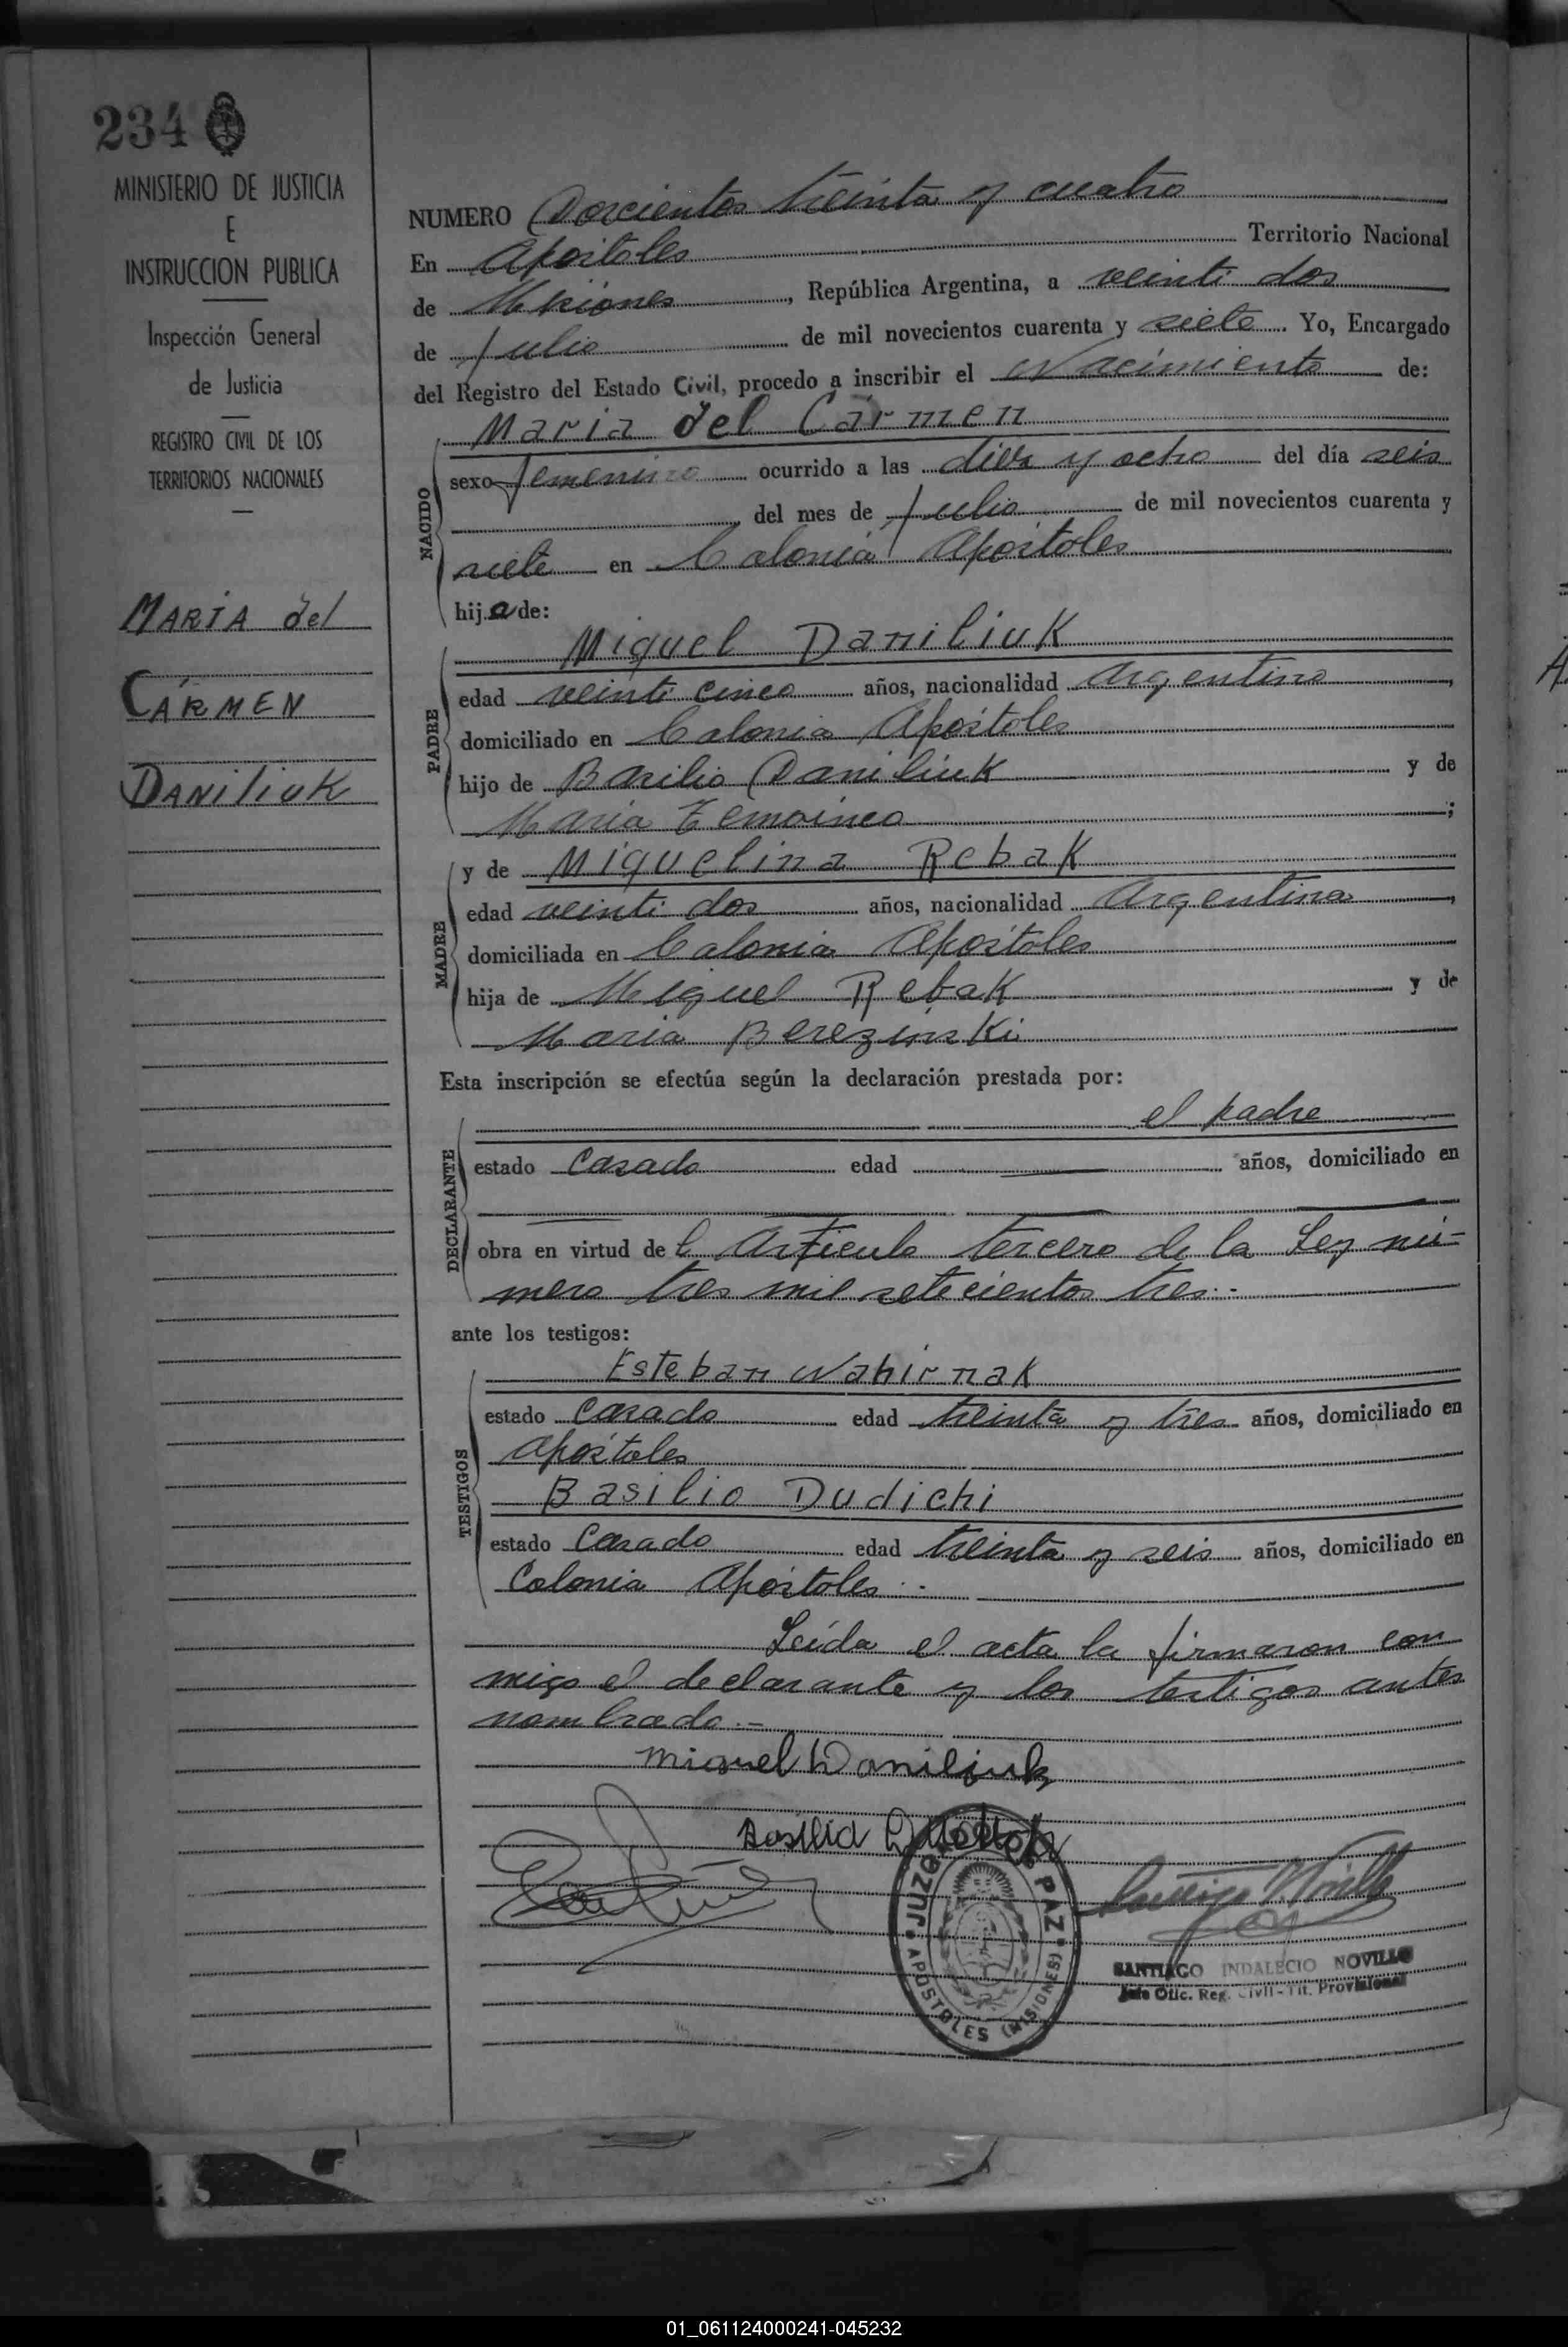 234
MINISTERIO DE JUSTICIA
E
INSTRUCCION PUBLICA
Inspección General
de Justicia
REGISTRO CIVIL DE LOS
TERRITORIOS NACIONALES
MARÍA del
CÁRMEN
DANILIUK
NUMERO Doscientos treinta y cuatro
En Apóstoles Territorio Nacional
de Misiones, República Argentina, a veinti dos
de Julio de mil novecientos cuarenta y siete. Yo, Encargado
del Registro del Estado Civil, procedo a inscribir el Nacimiento de:
NACIDO
María del Cármen
sexo femenino ocurrido a las diez y ocho del día seis
del mes de Julio de mil novecientos cuarenta y
siete en Colonia Apóstoles
hija de:
PADRE
Miguel Daniliuk
edad veinti cinco años, nacionalidad Argentino,
domiciliado en Colonia Apóstoles
hijo de Basilio Daniliuk y de
María;
MADRE
y de Miguelina Rebak
edad veinti dos años, nacionalidad Argentina,
domiciliada en Colonia Apóstoles
hija de Miguel Rebak y de
María Berezinski
Esta inscripción se efectúa según la declaración prestada por:
DECLARANTE
el padre
estado Casado edad años, domiciliado en
obra en virtud del Artículo tercero de la Ley nú-
mero tres mil setecientos tres.-
ante los testigos:
TESTIGOS
Esteban Nahirnak
estado Casado edad treinta y tres años, domiciliado en
Apóstoles
Basilio Dudichi
estado Casado edad treinta y seis años, domiciliado en
Colonia Apóstoles.-
Leída el acta la firmaron con
migo el declarante y los testigos antes
nombrado.-
Miguel Daniliuk
Basilio
JUZGADO DE PAZ
APÓSTOLES (MISIONES)
SANTIAGO INDALECIO NOVILLO
Jefe Ofic. Reg. Civil - Tit. Provisional
01_061124000241-045232